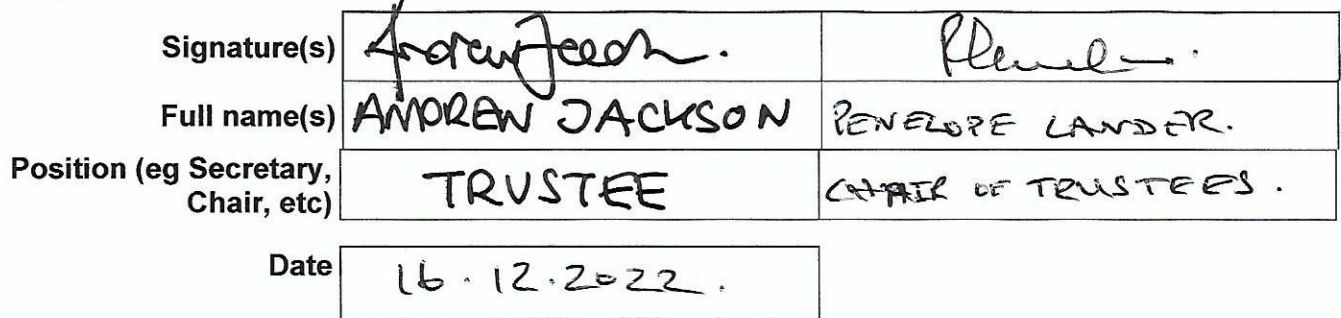 Signature(s)
Full name(s) ANDREW JACKSON PENELOPE LANDER.
Position (eg Secretary, Chair, etc) TRUSTEE CHAIR OF TRUSTEES.
Date 16.12.2022.